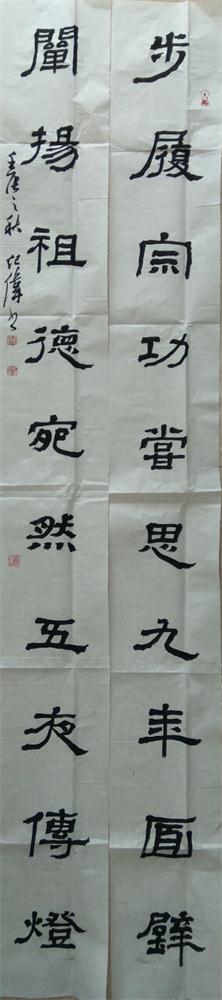 步履宗功嘗思九年面壁
闡揚祖德宛然五夜傳燈
壬辰之秋